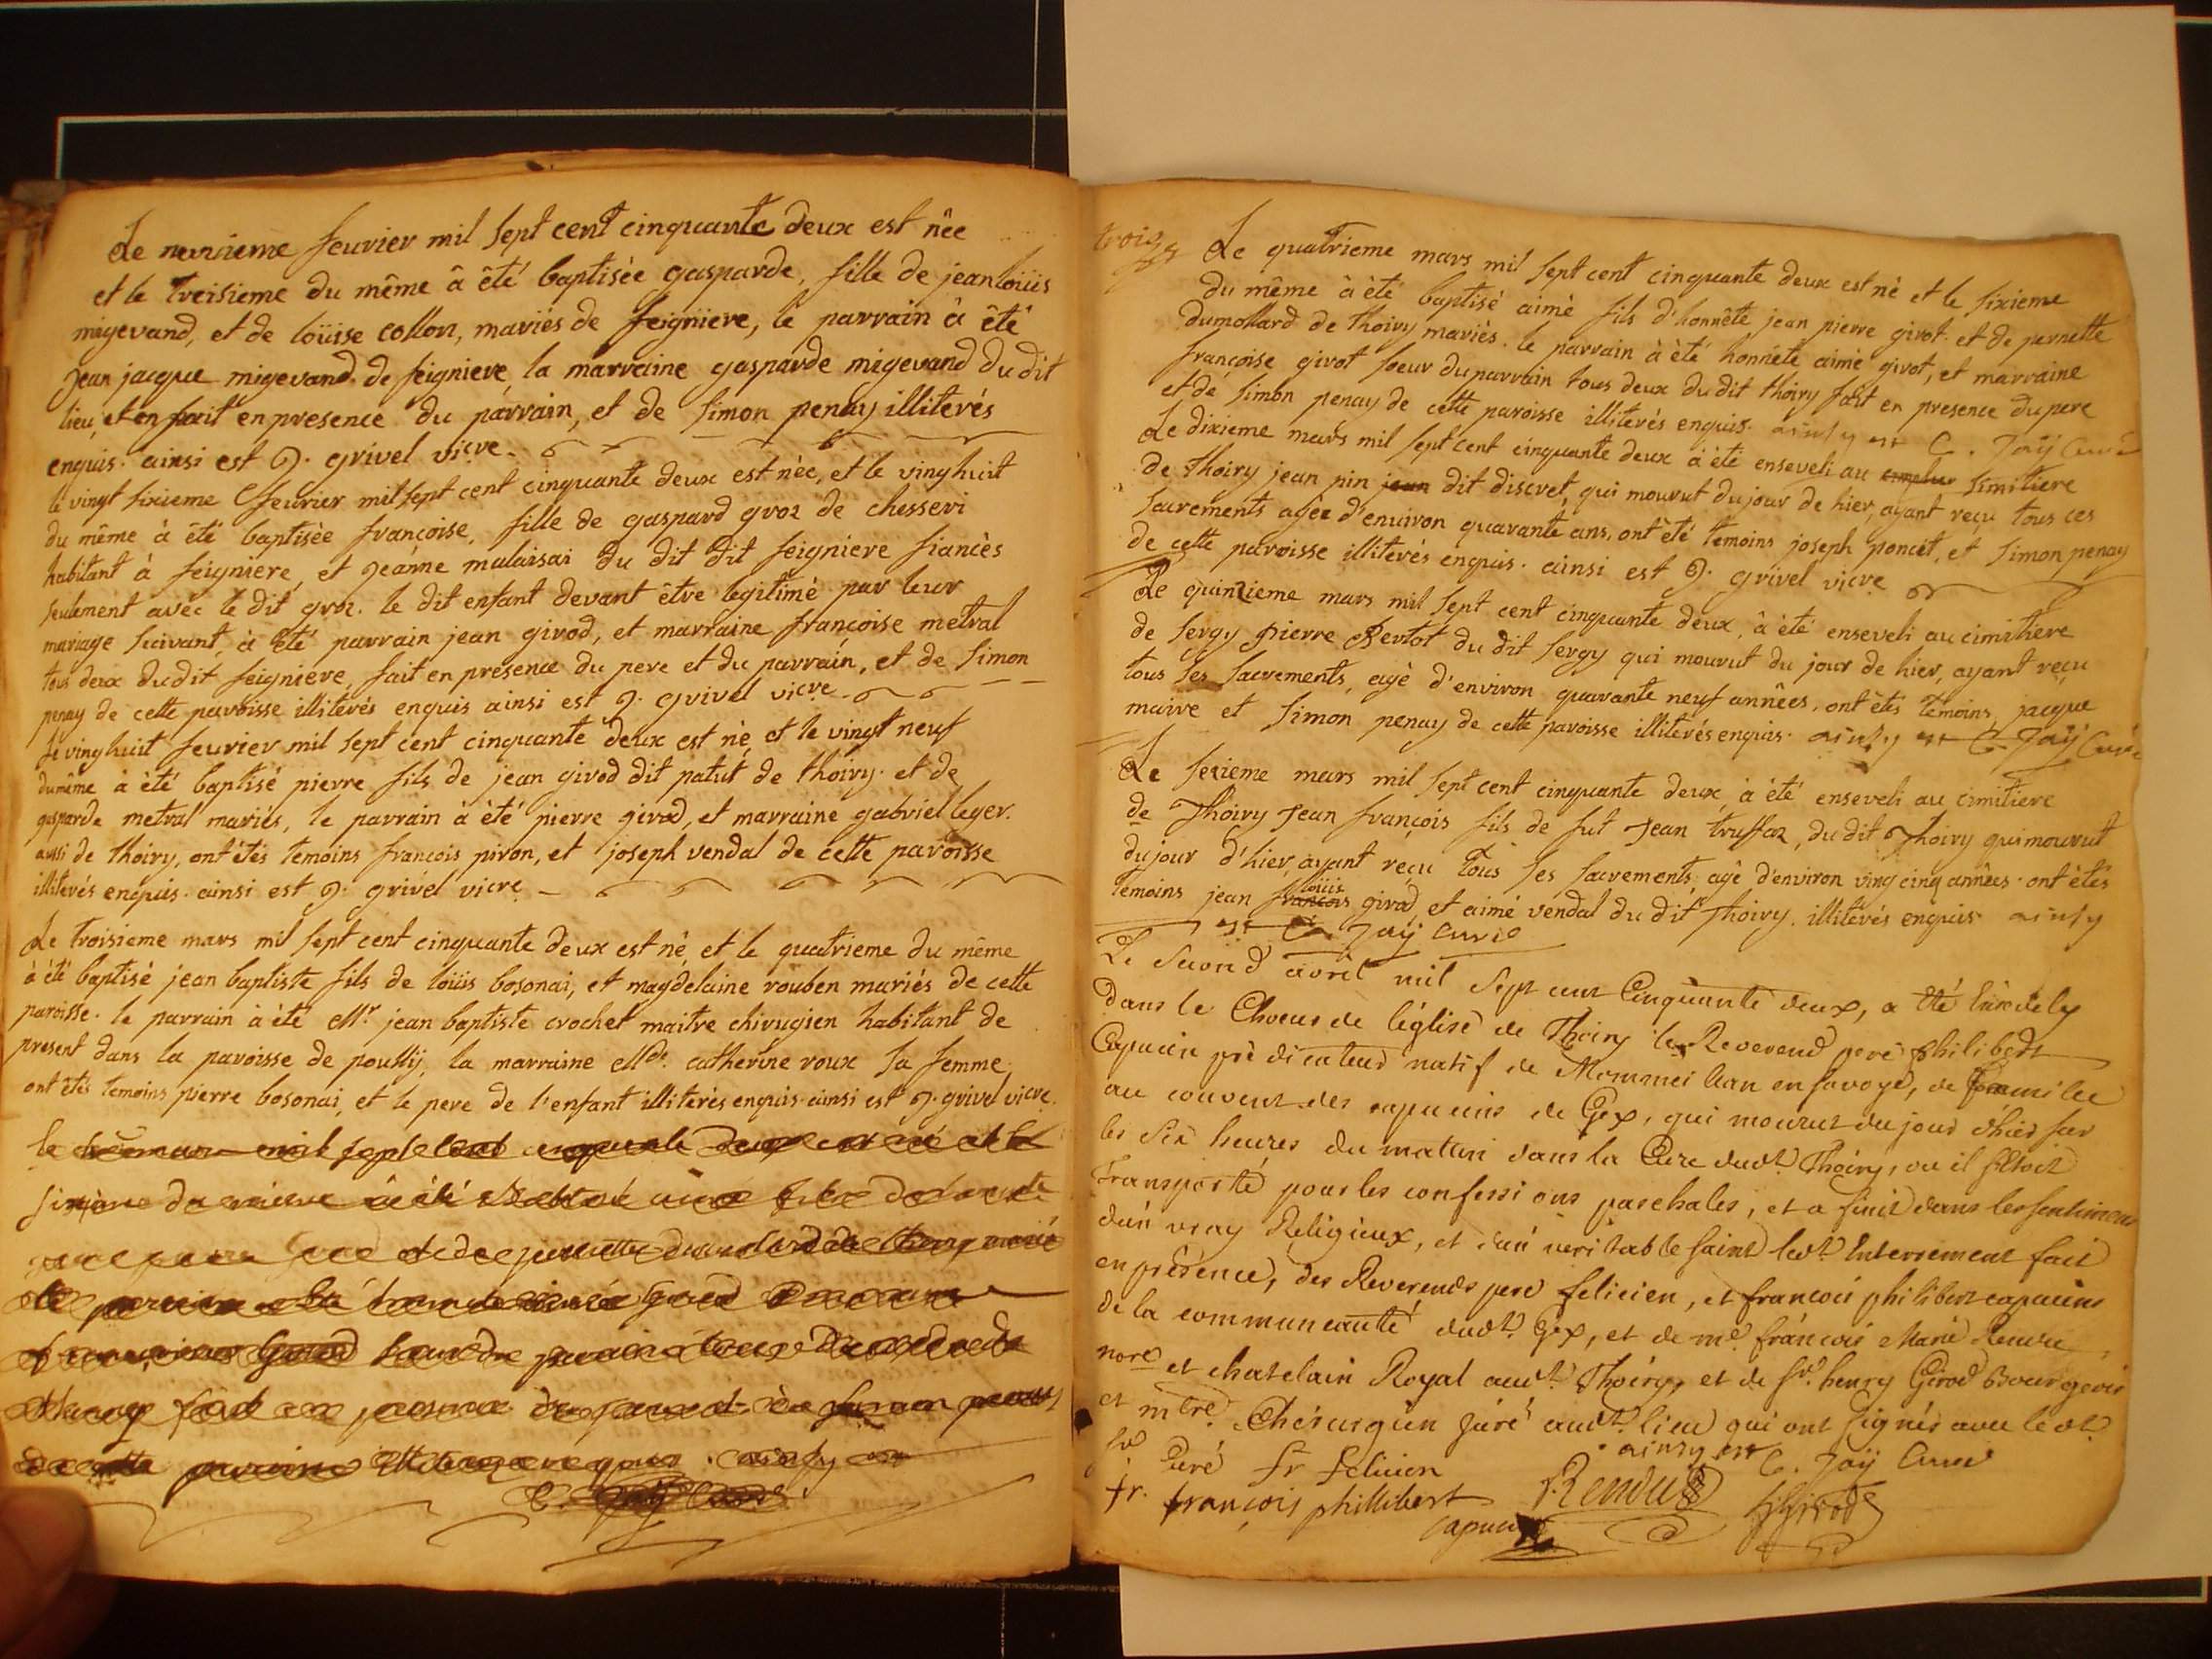 Le onzieme feurier mil sept cent cinquante deux est nêe
et le treisieme du même â êté baptisèe gasparde, fille de jean loüis
migevand, et de loüisse collon, mariés de feigniere, le parrain à êté
Jean jacque migevand de feigniere la marraine gasparde migevand du dit
lieu, et en fait en presence du parrain, et de Simon penay illiterés
enquis. ainsi est J. grivel vicre
le vingt sixieme feurier mil sept cent cinquante deux est nèe, et le vinghuit
du même à êté baptisèe françoise, fille de gaspard groz de chesseri
habitant à feigniere, et jeanne malaisai du dit dit feigniere fiancès
seulement avec le dit groz. le dit enfant devant être legitimé par leur
mariage suivant, à êté parrain jean girod, et marraine françoise metral
tous deux du dit feigniere, fait en presence du pere et du parrain, et de Simon
penay de cette paroisse illiterés enquis ainsi est J. grivel vicre
Le vinghuit feurier mil sept cent cinquante deux est nè, et le vingt neuf
du même à èté baptisé pierre fils de jean girod dit patut de thoiry. et de
gasparde metral mariés, le parrain à èté pierre girod, et marraine gabriel leger.
aussi de thoiry, ont étés temoins françois piron, et joseph vendal de cette paroisse
illiterés enquis. ainsi est J. grivel vicre
Le troisieme mars mil sept cent cinquante deux est né, et le quatrieme du même
à été baptisé jean baptiste fils de loüis bosonai, et magdelaine rouben mariés de cette
paroisse. le parrain à été Mr. jean baptiste crochet maitre chirugien habitant de
present dans la paroisse de poully, la marraine Mde. catherine roux sa femme.
ont êtés temoins pierre bosonai, et le pere de l'enfant illiterés enquis. ainsi est J. grivel vicre.
le mars mil sept cent cinquante deux est né et le
sixieme du même à été
et de pernette dumolard de thoiry marié
le parrain a été
girod soeur du parrain tous deux
thoiry fait en presence du pere et de simon penay
de cette paroisse enquis. ainsy est
C. Jaÿ Curé
trois
Le quatrieme mars mil sept cent cinquante deux est nè et le sixieme
du même â été baptisé aimé fils d'honnête jean pierre girot. et de pernette
dumollard de thoiry mariés. le parrain à èté honnête aimé girot, et marraine
françoise girot soeur du parrain tous deux du dit thoiry fait en presence du pere
et de Simon penay de cette paroisse illiterés enquis. ainsy est C. Jaÿ Curé
Le dixieme mars mil sept cent cinquante deux à été enseveli au simitiere
de thoiry jean pin jean dit discret, qui mourut du jour de hier, ayant reçu tous ces
sacrements agée d'environ quarante ans, ont été temoins joseph poncet, et Simon penay
de cette paroisse illiterés enquis. ainsi est J. grivel vicre
Le quinzieme mars mil sept cent cinquante deux, â été enseveli au cimitiere
de Sergy pierre Bertot du dit Sergy qui mourut du jour de hier, ayant reçu
tous ses sacrements, agé d'environ quarante neuf années. ont étés temoins, jacque
maire et Simon penay de cette paroisse illiterés enquis. ainsy est C. Jaÿ Curé
Le sezieme mars mil sept cent cinquante deux, à été enseveli au cimitiere
de Thoiry Jean françois fils de fut Jean truffaz, du dit Thoiry qui mourut
du jour d'hier, ayant reçu tous ses sacrements. agé d'environ ving cinq années. ont étés
loüis
temoins jean françois girod, et aimé vendal du dit Thoiry. illiterés enquis. ainsy
est C. Jaÿ Curé
Le second avril mil sept cent Cinquante deux, a été Ensevely
dans le Choeur de léglise de Thoiry le Reverend pere philibert
Capucin prèdicateur natif de Mommeilian en savoye, de famille
au couvent des capucins de Gex, qui mourut du jour d'hier sur
les Six heures du mattin dans la Cure dudt. Thoiry, ou il s'étoit
Transporté pour les confessions paschales, et a finit dans les sentimens
d'un vray Religieux, et d'un veritable saint ledt. Enterrement fait
en présence, des Reverends pere felicien, et françois philibert capucins
de la communeauté dudt. Gex, et de me. françois Marie Rendu,
nore et chatelain Royal audt. Thoiry, et de sr. henry Girod Bourgeois
et mtre. Chirurgien Juré audt. lieu qui ont signés avec ledt.
sr Curé ainsy est C. Jaÿ Curé
fr felicien
fr. françois phillibert Rendu hGirod
capucin